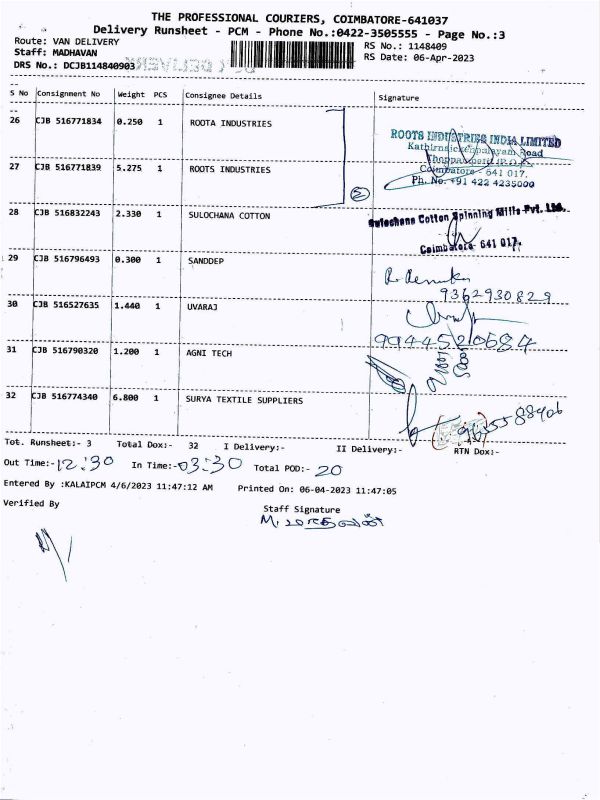 THE PROFESSIONAL COURIERS, COIMBATORE-641037
Delivery Runsheet - PCM - Phone No.:0422-3505555 - Page No.:3
Route: VAN DELIVERY
RS No.: 1148409
Staff: MADHAVAN
RS Date: 06-Apr-2023
DRS No.: DCJB114840903
S No Consignment No Weight PCS Consignee Details Signature
26 CJB 516771834 0.250 1 ROOTA INDUSTRIES
ROOTS INDUSTRIES INDIA LIMITED
Road
27 CJB 516771839 5.275 1 ROOTS INDUSTRIES
Coimbatore - 641 017.
Ph. No. +91 422 4235000
2
28 CJB 516832243 2.330 1 SULOCHANA COTTON
Sulochana Cotton Spinning Mills Pvt. Ltd.
Coimbatore- 641 017.
29 CJB 516796493 0.300 1 SANDDEP
9362930829
30 CJB 516527635 1.440 1 UVARAJ
9944520684
31 CJB 516790320 1.200 1 AGNI TECH
32 CJB 516774340 6.800 1 SURYA TEXTILE SUPPLIERS
Tot. Runsheet:- 3 Total Dox:- 32 I Delivery:- II Delivery:- RTN Dox:-
Out Time:- 12:30 In Time:- 03:30 Total POD:- 20
Entered By :KALAIPCM 4/6/2023 11:47:12 AM Printed On: 06-04-2023 11:47:05
Verified By
Staff Signature